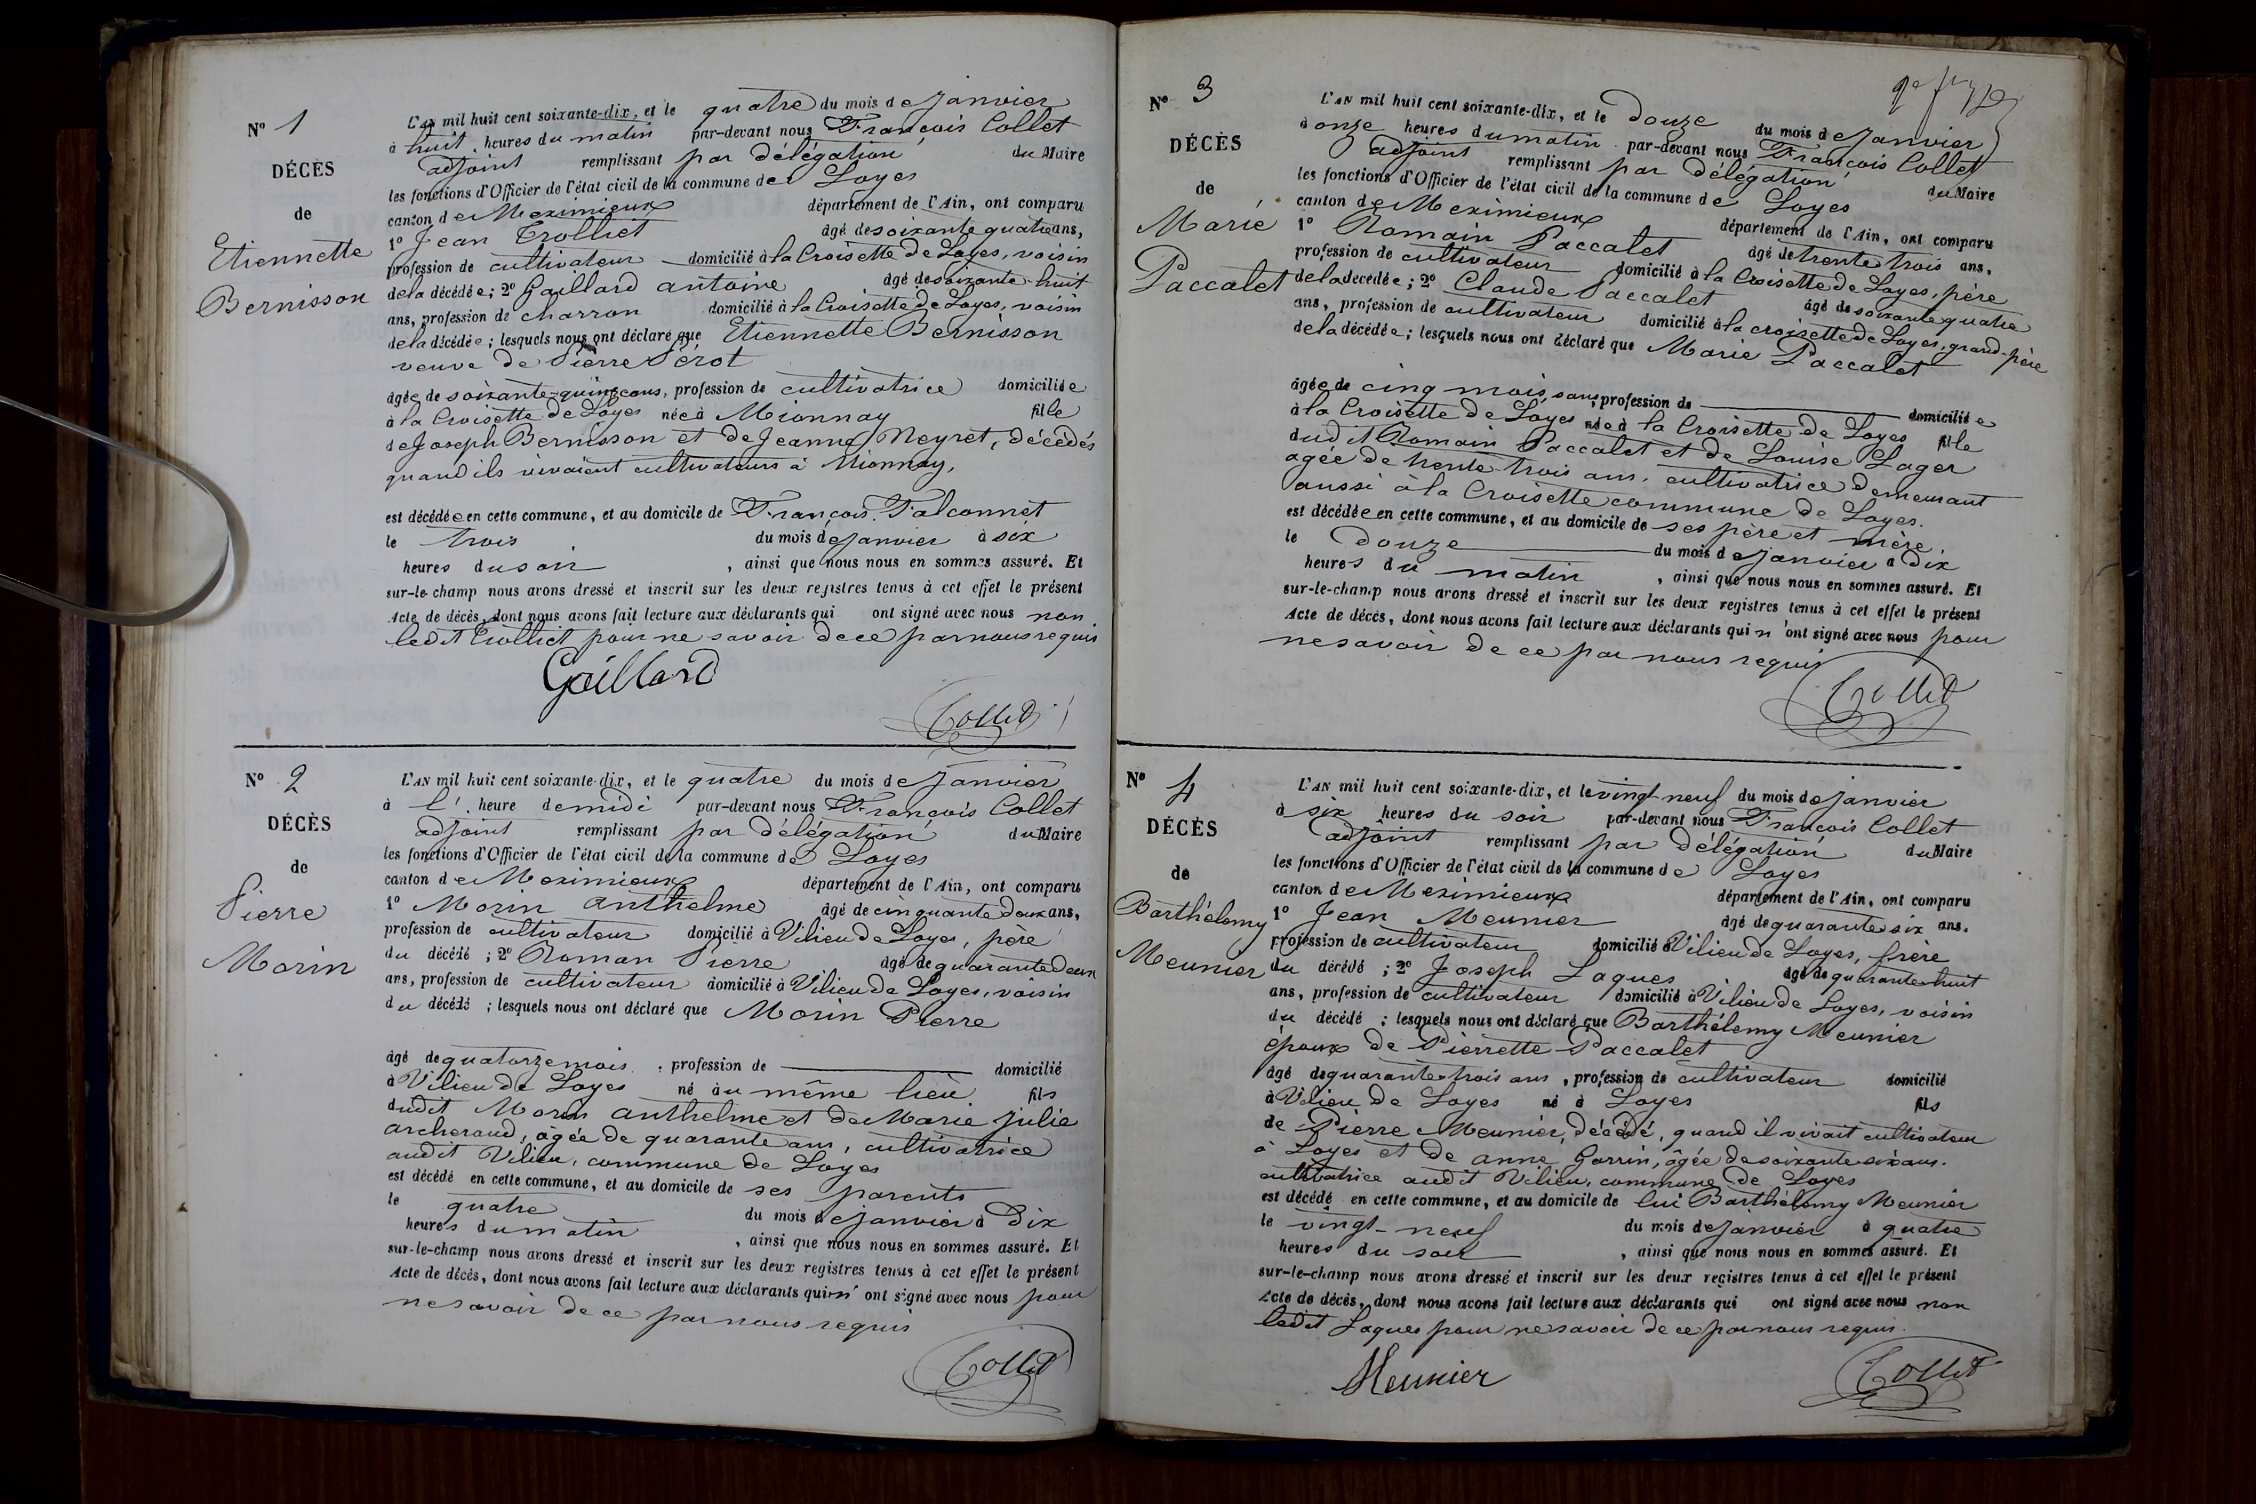 N° 1
DÉCÈS
de
Etiennette
Bernisson
L'AN mil huit cent soixante-dix, et le quatre du mois de Janvier
à huit heures du matin par-devant nous François Collet
adjoint remplissant par délégation du Maire
les fonctions d'Officier de l'état civil de la commune de Loyes
canton de Meximieux département de l'Ain, ont comparu
1° Jean Trolliet âgé de soixante quatre ans,
profession de cultivateur domicilié à la Croisette de Loyes, voisin
de la décédée ; 2° Gaillard antoine âgé de soixante-huit
ans, profession de charron domicilié à la Croisette de Loyes, voisin
de la décédée ; lesquels nous ont déclaré que Etiennette Bernisson
veuve de Pierre Pérot
âgée de soixante-quinze ans, profession de cultivatrice domiciliée
à la Croisette de Loyes née à Mionnay fille
de Joseph Bernisson et de Jeanne Neyret, décédés
quand ils vivaient cultivateurs à Mionnay,
est décédée en cette commune, et au domicile de François Falconnet
le trois du mois de Janvier à six
heures du soir , ainsi que nous nous en sommes assuré. Et
sur-le-champ nous avons dressé et inscrit sur les deux registres tenus à cet effet le présent
Acte de décès, dont nous avons fait lecture aux déclarants qui ont signé avec nous non
ledit Trolliet pour ne savoir de ce par nous requis
Gaillard
Collet
N° 2
DÉCÈS
de
Pierre
Morin
L'AN mil huit cent soixante-dix, et le quatre du mois de Janvier
à l' heure de midi par-devant nous François Collet
adjoint remplissant par délégation du Maire
les fonctions d'Officier de l'état civil de la commune de Loyes
canton de Meximieux département de l'Ain, ont comparu
1° Morin anthelme âgé de cinquante deux ans,
profession de cultivateur domicilié à Vilieu de Loyes, père
du décédé ; 2° Roman Pierre âgé de quarante deux
ans, profession de cultivateur domicilié à Vilieu de Loyes, voisin
du décédé ; lesquels nous ont déclaré que Morin Pierre
âgé de quatorze mois , profession de domicilié
à Vilieu de Loyes né au même lieu fils
dudit Morin anthelme et de Marie Julie
archeraud, âgée de quarante ans, cultivatrice
audit Vilieu, commune de Loyes
est décédé en cette commune, et au domicile de ses parents
le quatre du mois de Janvier à Dix
heures du matin , ainsi que nous nous en sommes assuré. Et
sur-le-champ nous avons dressé et inscrit sur les deux registres tenus à cet effet le présent
Acte de décès, dont nous avons fait lecture aux déclarants qui n'ont signé avec nous pour
ne savoir de ce par nous requis
Collet
N° 3
DÉCÈS
de
Marie
Paccalet
L'AN mil huit cent soixante-dix, et le Douze du mois de Janvier
à onze heures du matin par-devant nous François Collet
adjoint remplissant par délégation du Maire
les fonctions d'Officier de l'état civil de la commune de Loyes
canton de Meximieux département de l'Ain, ont comparu
1° Romain Paccalet âgé de trente trois ans,
profession de cultivateur domicilié à la Croisette de Loyes, père
de la décédée ; 2° Claude Paccalet âgé de soixante quatre
ans, profession de cultivateur domicilié à la croisette de Loyes, grand-père
de la décédée ; lesquels nous ont déclaré que Marie Paccalet
âgée de cinq mois, sans profession de domiciliée
à la Croisette de Loyes née à la Croisette de Loyes fille
dudit Romain Paccalet et de Louise Lager
agée de trente-trois ans, cultivatrice demeurant
aussi à la Croisette commune de Loyes.
est décédée en cette commune, et au domicile de ses père et mère
le Douze du mois de Janvier à Dix
heures du matin , ainsi que nous nous en sommes assuré. Et
sur-le-champ nous avons dressé et inscrit sur les deux registres tenus à cet effet le présent
Acte de décès, dont nous avons fait lecture aux déclarants qui n'ont signé avec nous pour
ne savoir de ce par nous requis
Collet
N° 4
DÉCÈS
de
Barthélemy
Meunier
L'AN mil huit cent soixante-dix, et le vingt-neuf du mois de Janvier
à six heures du soir par-devant nous François Collet
adjoint remplissant par délégation du Maire
les fonctions d'Officier de l'état civil de la commune de Loyes
canton de Meximieux département de l'Ain, ont comparu
1° Jean Meunier âgé de quarante six ans.
profession de cultivateur domicilié à Vilieu de Loyes, frère
du décédé ; 2° Joseph Laques âgé de quarante-huit
ans, profession de cultivateur domicilié à Vilieu de Loyes, voisin
du décédé ; lesquels nous ont déclaré que Barthélemy Meunier
époux de Pierrette Paccalet
âgé de quarante-trois ans , profession de cultivateur domicilié
à Vilieu de Loyes né à Loyes fils
de Pierre Meunier, décédé, quand il vivait cultivateur
à Loyes et de anne Garrin, âgée de soixante six ans.
cultivatrice audit Vilieu, commune de Loyes
est décédé en cette commune, et au domicile de lui Barthélemy Meunier
le vingt-neuf du mois de Janvier à quatre
heures du soir , ainsi que nous nous en sommes assuré. Et
sur-le-champ nous avons dressé et inscrit sur les deux registres tenus à cet effet le présent
Acte de décès, dont nous avons fait lecture aux déclarants qui ont signé avec nous non
ledit Laques pour ne savoir de ce par nous requis.
Meunier
Collet